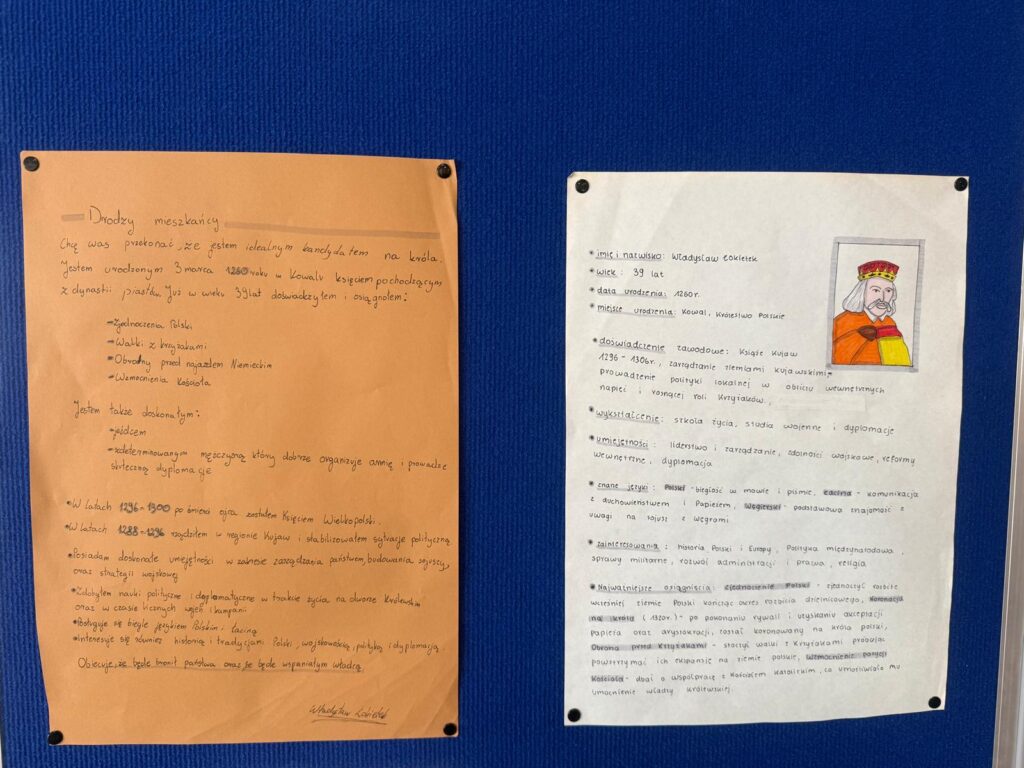 Drodzy mieszkańcy
Chcę was przekonać, że jestem idealnym kandydatem na króla.
Jestem urodzonym 3 marca 1260 roku w Kowalu księciem pochodzącym
z dynastii piastów. Już w wieku 39 lat doświadczyłem i osiągnołem:
- Zjednoczenia Polski
- Walki z krzyżakami
- Obrony przed najazdem Niemieckim
- Wzmocnienia Kościoła
Jestem także doskonałym:
- jeźdcem
- zdeterminowanym mężczyzną który dobrze organizuje armię i prowadzę
skuteczną dyplomację
• W latach 1296-1300 po śmierci ojca zostałem Księciem Wielkopolski.
• W latach 1288-1296 rządziłem w regionie Kujaw i stabilizowałem sytuacje polityczną.
• Posiadam doskonałe umiejętności w zakresie zarządzania państwem, budowania sojuszy,
oraz strategii wojskowej
• Zdobyłem nauki polityczne i dyplomatyczne w trakcie życia na dworze królewskim
oraz w czasie licznych wojen i kampanii
• Posługuję się biegle językiem Polskim i Łaciną
• Interesuje się również historią i tradycjami Polski, wojskowością, polityką i dyplomacją
Obiecuję, że będę bronił państwa oraz że będę wspaniałym władcą.
Władysław Łokietek
• imię i nazwisko: Władysław Łokietek
• wiek: 39 lat
• data urodzenia: 1260 r.
• miejsce urodzenia: Kowal, Królestwo Polskie
• doświadczenie zawodowe: Książe Kujaw
1296 - 1306r., zarządzanie ziemiami kujawskimi,
prowadzenie polityki lokalnej w obliczu wewnętrznych
napięć i rosnącej roli Krzyżaków.
• wykształcenie: szkoła życia, studia wojenne i dyplomacje
• umiejętności: liderstwo i zarządzanie, zdolności wojskowe, reformy
wewnętrzne, dyplomacja
• znane języki: Polski - biegłość w mowie i piśmie, Łacina - komunikacja
z duchowieństwem i Papieżem, Węgierski - podstawowa znajomość z
uwagi na sojusz z Węgrami
• zainteresowania: historia Polski i Europy, Polityka międzynarodowa,
sprawy militarne, rozwój administracji i prawa, religia
• Najważniejsze osiągnięcia: zjednoczenie Polski - zjednoczyć rozbite
wcześniej ziemie Polski kończąc okres rozbicia dzielnicowego, Koronacja
na króla (1320r.) - po pokonaniu rywali i uzyskaniu akceptacji
papieża oraz arystokracji, został koronowany na króla polski,
Obrona przed Krzyżakami - stoczył walki z Krzyżakami próbując
powstrzymać ich ekspansję na ziemie polskie, Wzmocnienie pozycji
Kościoła - dbał o współpracę z Kościołem katolickim, co umożliwiało mu
umocnienie władzy królewskiej.